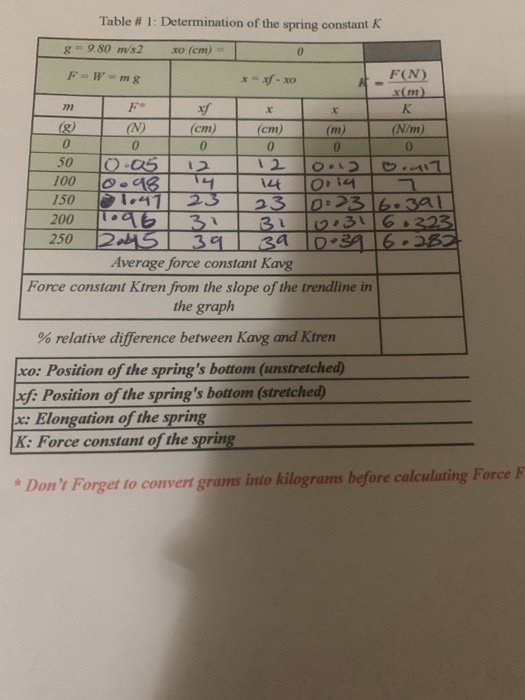 Table # 1: Determination of the spring constant K
g = 9.80 m/s2 xo (cm) = 0
F = W = m g x = xf - xo K = F(N) / x(m)
m F* xf x x K
(g) (N) (cm) (cm) (m) (N/m)
0 0 0 0 0 0
50 0.05 12 12 0.12 0.417
100 0.98 14 14 0.14 7
150 1.47 23 23 0.23 6.391
200 1.96 31 31 0.31 6.323
250 2.45 39 39 0.39 6.282
Average force constant Kavg
Force constant Ktren from the slope of the trendline in
the graph
% relative difference between Kavg and Ktren
xo: Position of the spring's bottom (unstretched)
xf: Position of the spring's bottom (stretched)
x: Elongation of the spring
K: Force constant of the spring
* Don't Forget to convert grams into kilograms before calculating Force F